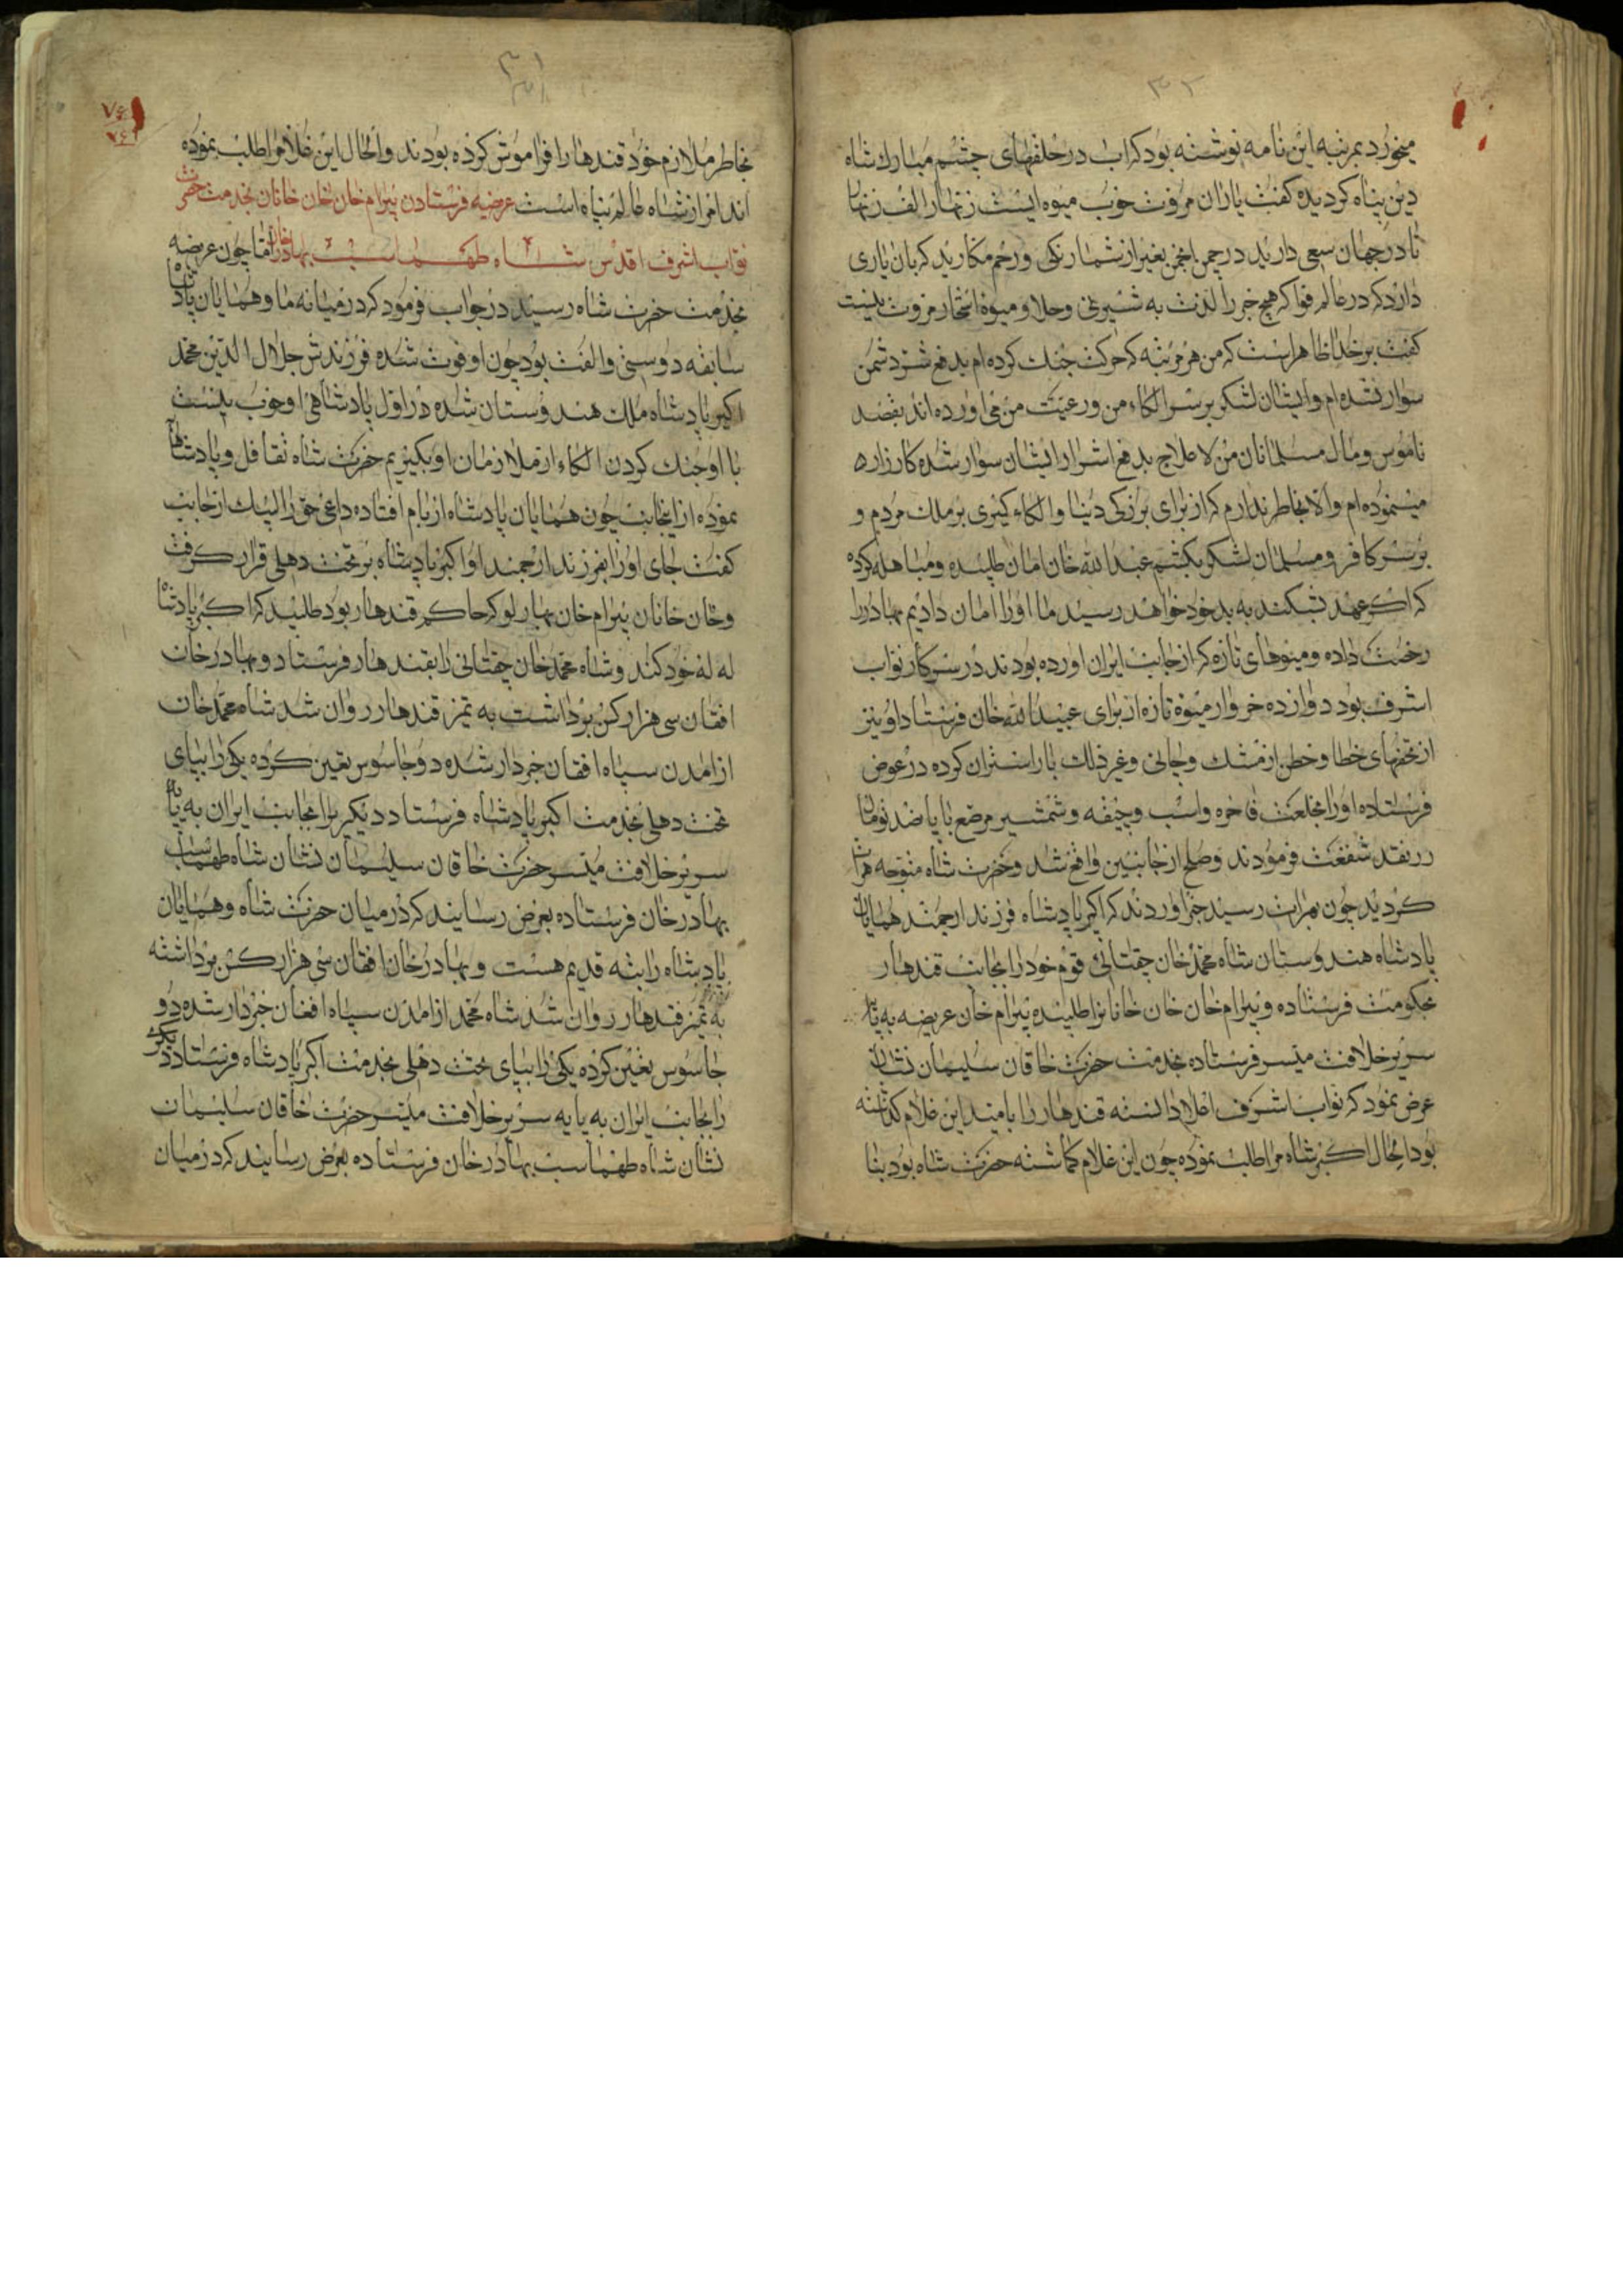 ۳۲
میخورد بمرتبه این نامه نوشته بود که اب در حلقهای چشم مبارک شاه
دین پناه کردیده کفت یاران مروت خوب میوه ایست زنهار الف زنهار
تا در جهان سعی دارید در چمن انجمن بغیر از شمار نکی و رحم مکارید که بان یاری
دارد که در عالم فواکه هیچ خیر را لذت به شیرینی و حلاو میوه اشجار مروت نیست
کفت بر خدا ظاهر است که من هر مرتبه که حرکت جنک کرده ام بدفع شر دشمن
سوار شده ام و ایشان لشکر بر سر الکاء من و رعیت من می اورده اند بقصد
ناموس و مال مسلمانان من لاعلاج بدفع اشرار ایشان سوار شده کارزار
مینموده ام والا بخاطر ندارم که از برای بزرکی دنیا و الکاء کیری بر ملک مردم و
بر سر کافر و مسلمان لشکر بکشم عبدالله خان امان طلبیده و مباهله کرده
که اکر عهد بشکند به بد خود خواهد رسید ما او را امان دادیم بهادر را
رخصت داده و میوهای تازه که از جانب ایران اورده بودند در سرکار نواب
اشرف بود دوازده خروار میوه تازه از برای عبیدالله خان فرستاد او نیز
از تحفهای خطا و ختن از مشک و چائی و غیر ذلک بار استران کرده در عوض
فرستاده او را بخلعت فاخره و اسب و جیغه و شمشیر مرصع با پانصد تومان
زر نقد شفقت فرمودند و صلح از جانبین واقع شد و حضرت شاه متوجه هرات
کردید چون بهرات رسید خبر اوردند که اکبر پادشاه فرزند ارجمند همایان
پادشاه هندوستان شاه محمد خان چقتائی قوم خود را بجانب قندهار
بحکومت فرستاده و بیرام خان خان خانانرا طلبیده بیرام خان عریضه به پایه
سریر خلافت مسیر فرستاده بخدمت حضرت خاقان سلیمان نشان
عرض نمود که نواب اشرف اعلا دانسته قندهار را بامید این غلام کذاشته
بود الحال اکبر شاه مرا طلب نموده چون این غلام کماشته حضرت شاه بود بنا
۳۱
بخاطر ملازم خود قندهار را فراموش کرده بودند و الحال این غلام را طلب نموده
اند امر از شاه عالم پناه است عرضیه فرستادن بیرام خان خان خانان بخدمت حضرت
نواب اشرف اقدس شاه طهماسب بهادر خان اما چون عریضه
بخدمت حضرت شاه رسید در جواب فرمود که در میانه ما و همایان پادشاه
سابقه دوستی و الفت بود چون او فوت شده فرزندش جلال الدین محمد
اکبر پادشاه ملک هندوستان شده در اول پادشاهی او خوب نیست
با او جنک کردن الکاء از ملازمان او بکیریم حضرت شاه تغافل و پادشاهانه
نموده از اینجانب چون همایان پادشاه از بام افتاده داعی حق را لبیک اجابت
کفت جای او را بفرزند ارجمند او اکبر پادشاه بر تخت دهلی قرار کرفت
و خان خانان بیرام خان بهارلو که حاکم قندهار بود طلبید که اکبر پادشاه
له له خود کند و شاه محمد خان چقتائی را بقندهار فرستاد و بهادر خان
افقان سی هزار کس برداشت به تمیز قندهار روان شد شاه محمد خان
از امدن سپاه افقان خبردار شده دو جاسوس تعین کرده یکی را بپای
تخت دهلی بخدمت اکبر پادشاه فرستاد دیکر را بجانب ایران به پایه
سریر خلافت میسر حضرت خاقان سلیمان نشان شاه طهماسب
بهادر خان فرستاده بعرض رسانید که در میان حضرت شاه و همایان
پادشاه رابطه قدیم هست و بهادر خان افقان سی هزار کس برداشته
به تمیز قندهار روان شد شاه محمد از امدن سپاه افغان خبردار شده دو
جاسوس تعین کرده یکی را بپای تخت دهلی بخدمت اکبر پادشاه فرستاد دیکری
را بجانب ایران به پایه سریر خلافت میسر حضرت خاقان سلیمان
نشان شاه طهماسب بهادر خان فرستاده بعرض رسانید که در میان